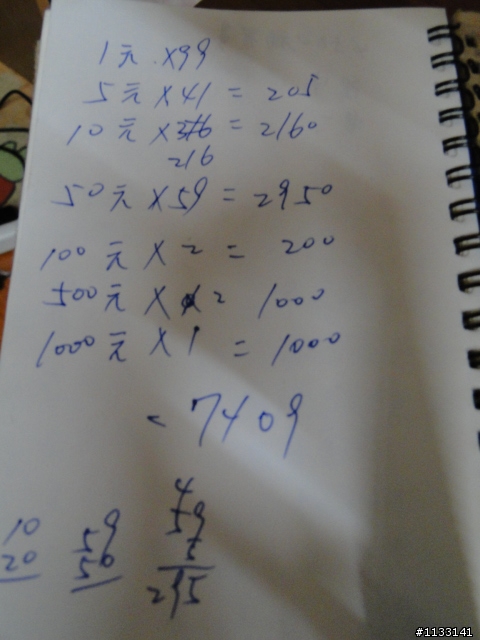 1元 ×99
5元 × 41 = 205
10元 × = 2160
216
50元 × 59 = 2950
100元 × 2 = 200
500元 × 2 1000
1000元 × 1 = 1000
= 7409
4
10 59 59
20 50 5
295
#1133141